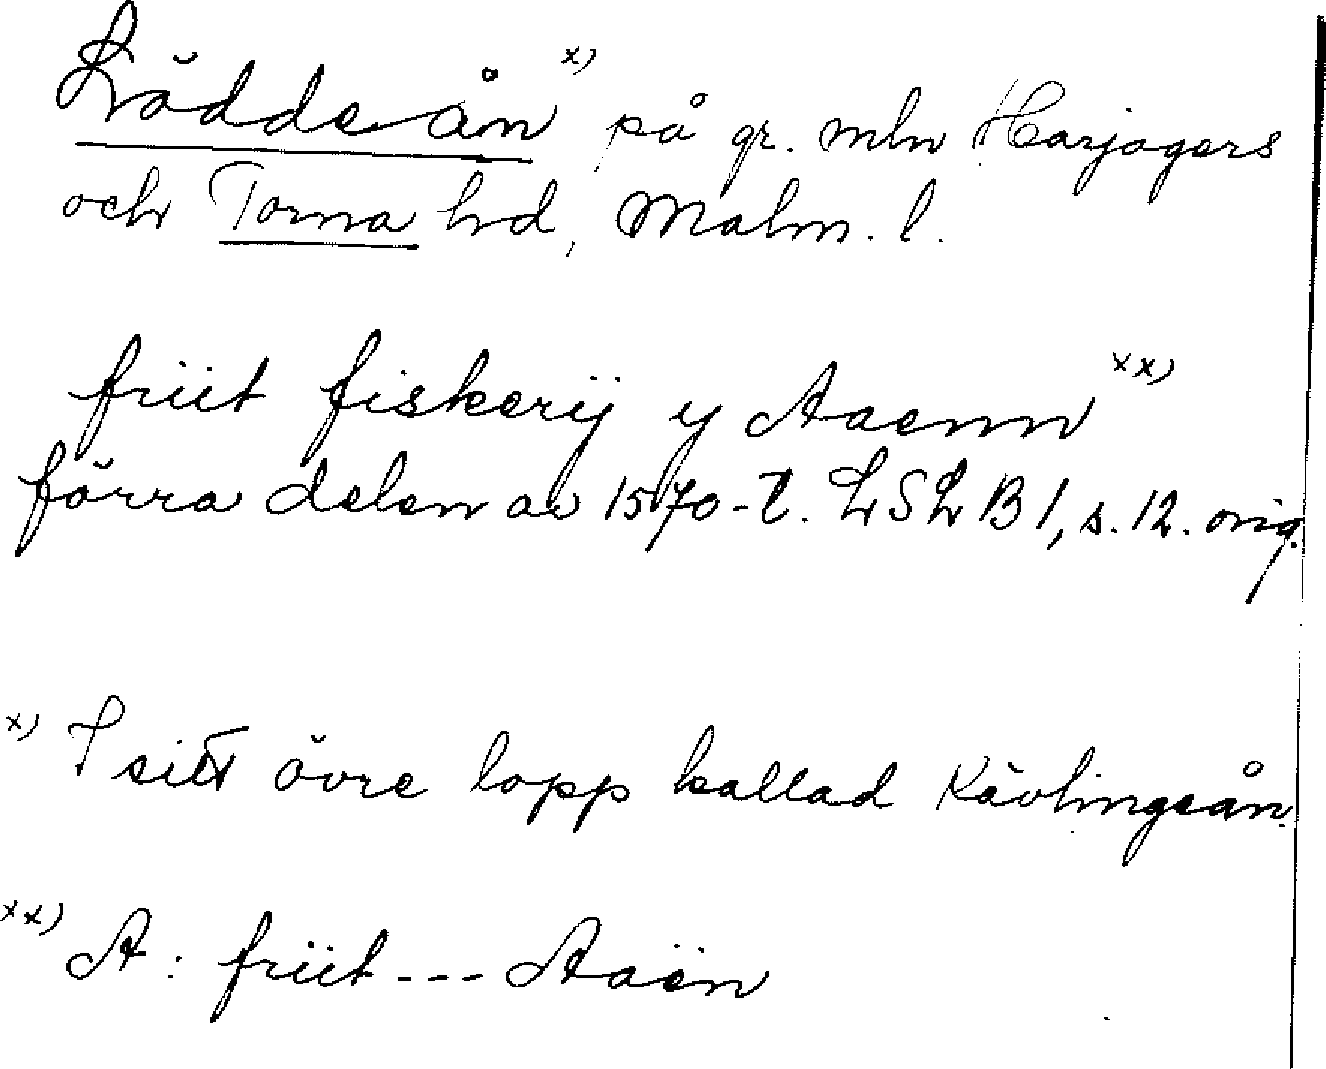 Löddeån x) på gr. mln Harjagers
och Torna hd, Malm. l.
friit fiskerij y Aaenn xx)
förra delen av 1570-t. LSLB1, s. 12. orig.
x) I sitt övre lopp kallad Kävlingeån.
xx) A: friit --- Aaen